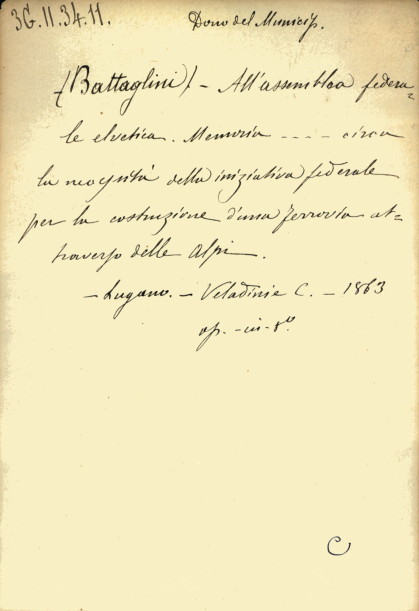 3G.II.34.11.
Dono del Municip.
(Battaglini) - All'assemblea federa=
le elvetica. Memoria - - - - circa
la necessità della iniziativa federale
per la costruzione d'una ferrovia at=
traverso delle Alpi.
- Lugano. - Veladini e C. - 1863
op. - in - 8°.
C